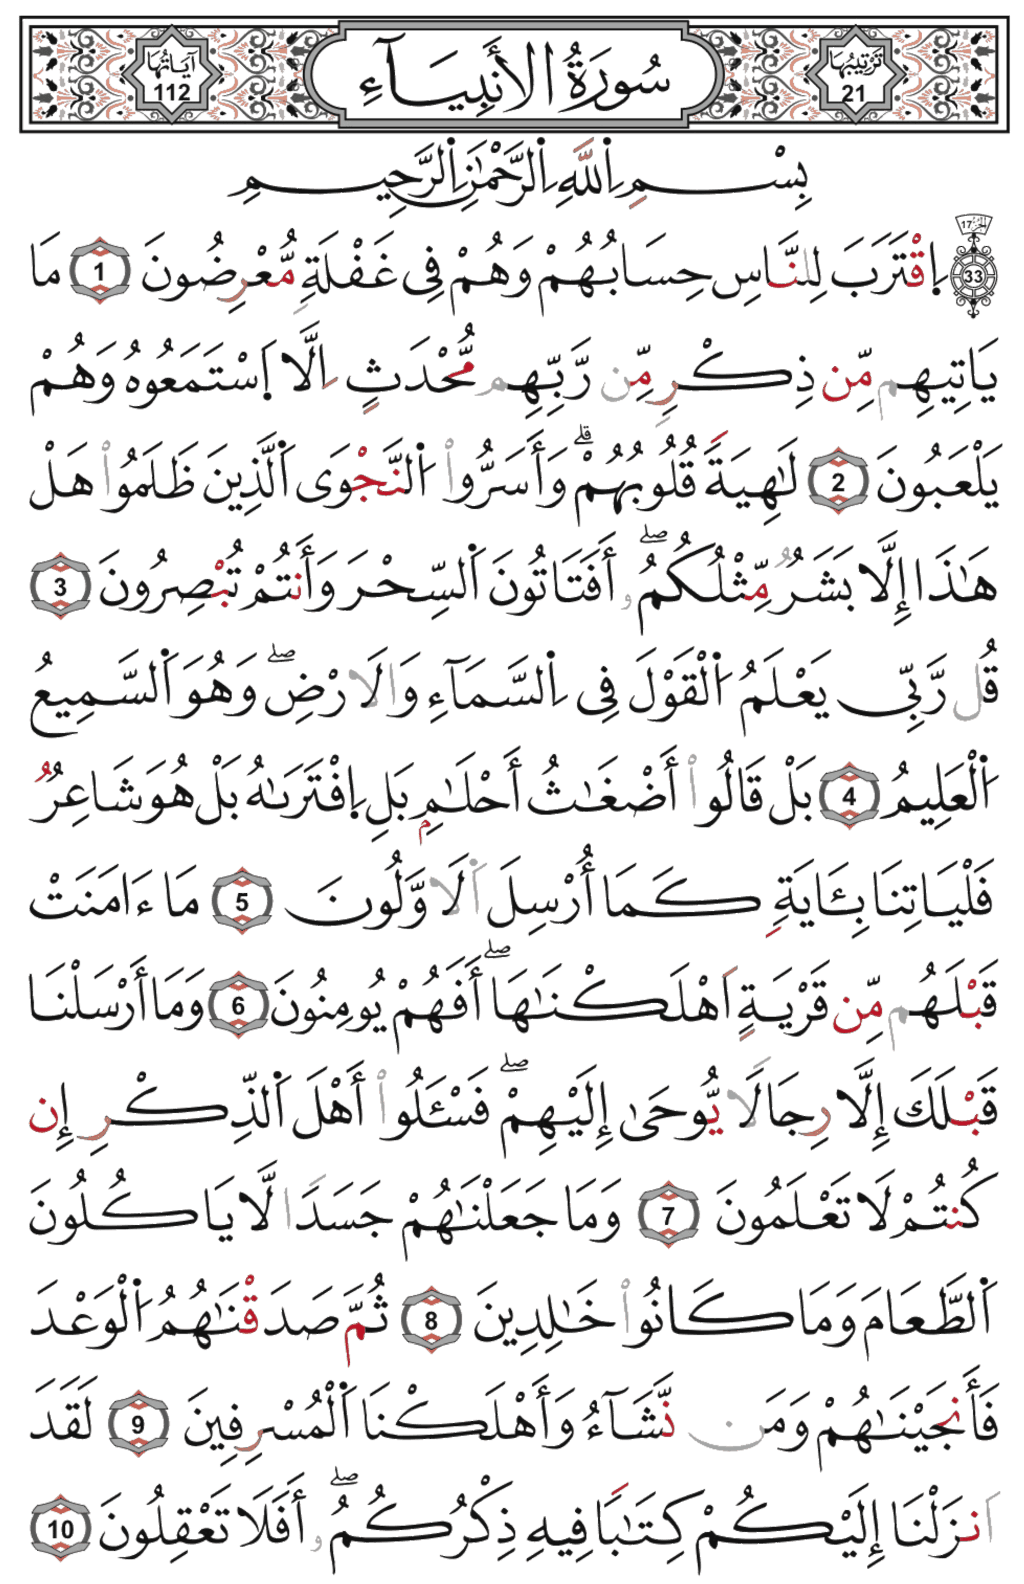 تَرْتِيبُهَا 21 سُورَةُ الأَنبِيَآءِ آيَاتُهَا 112
بِسْمِ اِللَّهِ اِلرَّحْمَٰنِ اِلرَّحِيمِ
الحزب 17 33 اِقْتَرَبَ لِلنَّاسِ حِسَابُهُمْ وَهُمْ فِى غَفْلَةٍ مُّعْرِضُونَ 1 مَا
يَاتِيهِم مِّن ذِكْرٍ مِّن رَّبِّهِم مُّحْدَثٍ اِلَّا اَسْتَمَعُوهُ وَهُمْ
يَلْعَبُونَ 2 لَٰهِيَةً قُلُوبُهُمْ ۗ وَأَسَرُّواْ اُلنَّجْوَى اَلَّذِينَ ظَلَمُواْ هَلْ
هَٰذَا إِلَّا بَشَرٌ مِّثْلُكُمُۥ ۖ أَفَتَاتُونَ اَلسِّحْرَ وَأَنتُمْ تُبْصِرُونَ 3
قُل رَّبِّى يَعْلَمُ اُلْقَوْلَ فِى اِلسَّمَآءِ وَالَارْضِ ۖ وَهُوَ اَلسَّمِيعُ
اُلْعَلِيمُ 4 بَلْ قَالُواْ أَضْغَٰثُ أَحْلَٰمِۭ بَلِ اِفْتَرَىٰهُ بَلْ هُوَ شَاعِرٌ
فَلْيَاتِنَا بِـَٔايَةٍ كَمَا أُرْسِلَ اَلَاوَّلُونَ 5 مَا ءَامَنَتْ
قَبْلَهُم مِّن قَرْيَةٍ اَهْلَكْنَٰهَا ۖ أَفَهُمْ يُومِنُونَ 6 وَمَا أَرْسَلْنَا
قَبْلَكَ إِلَّا رِجَالًا يُّوحَىٰ إِلَيْهِمْ ۖ فَسْـَٔلُواْ أَهْلَ اَلذِّكْرِ إِن
كُنتُمْ لَا تَعْلَمُونَ 7 وَمَا جَعَلْنَٰهُمْ جَسَدًا لَّا يَاكُلُونَ
اَلطَّعَامَ وَمَا كَانُواْ خَٰلِدِينَ 8 ثُمَّ صَدَقْنَٰهُمُ اُلْوَعْدَ
فَأَنجَيْنَٰهُمْ وَمَن نَّشَآءُ وَأَهْلَكْنَا اَلْمُسْرِفِينَ 9 لَقَدَ
اَنزَلْنَا إِلَيْكُمْ كِتَٰبًا فِيهِ ذِكْرُكُمُۥ ۖ أَفَلَا تَعْقِلُونَ 10